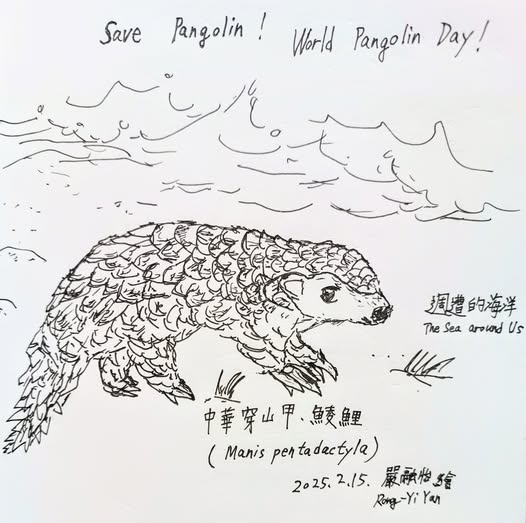 Save Pangolin! World Pangolin Day!
週遭的海洋
The Sea around Us
中華穿山甲、鯪鯉
(Manis pentadactyla)
2025.2.15. 嚴融怡繪
Rong-Yi Yan